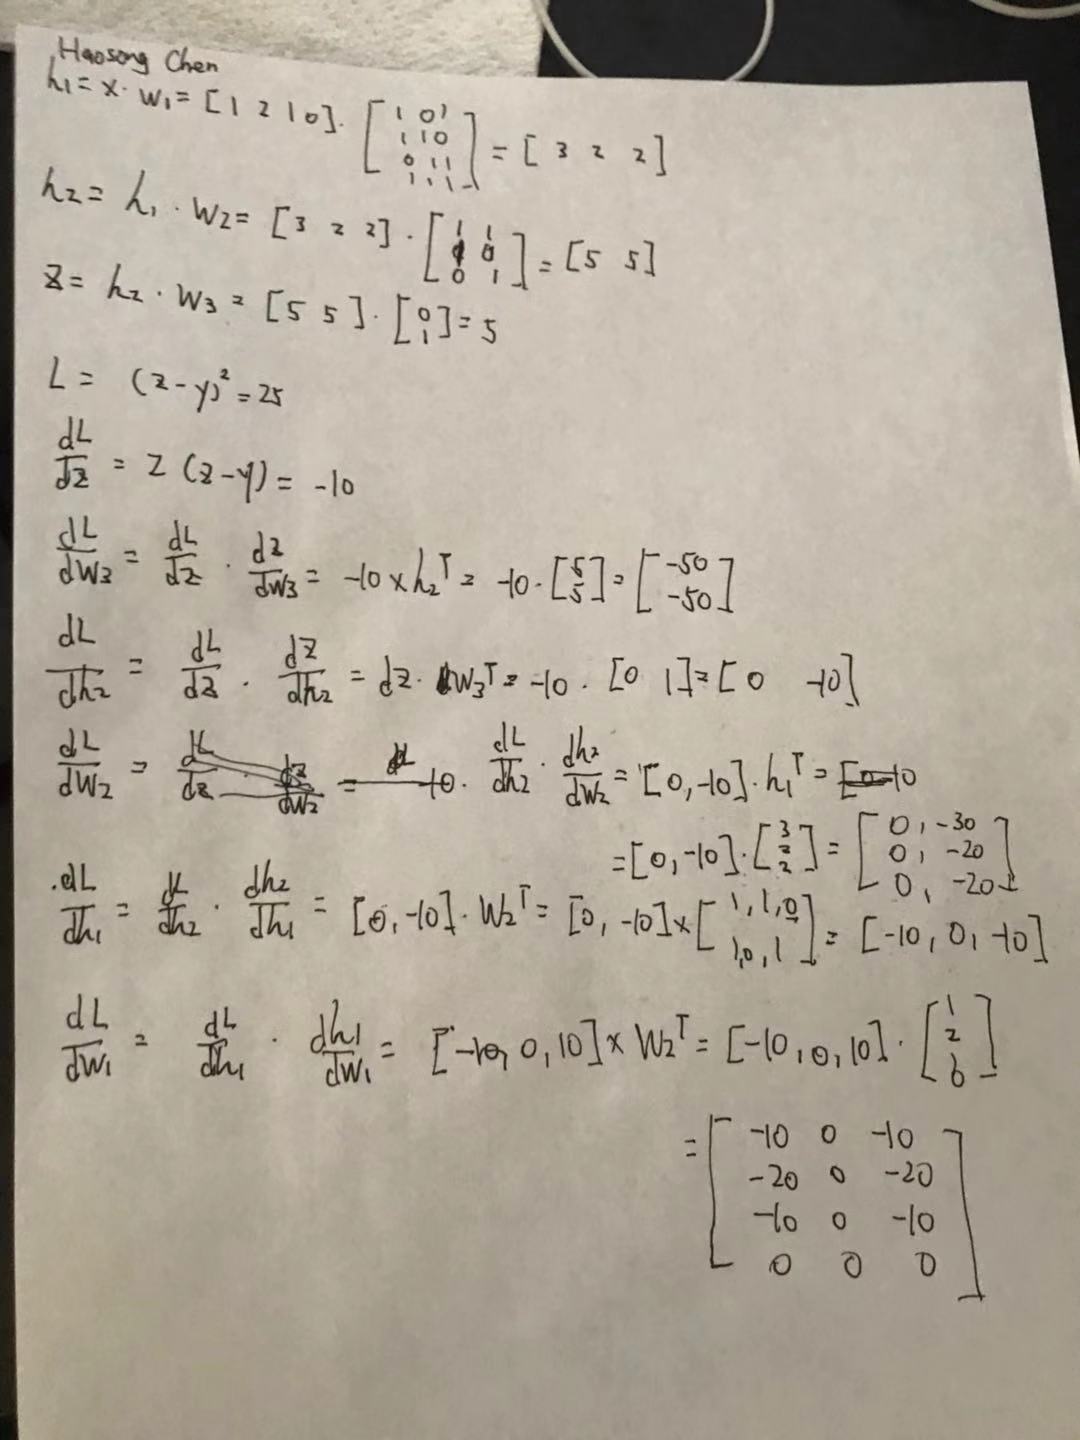 Haosong Chen
h₁ = x · W₁ = [1 2 1 0] · [1 0 1; 1 1 0; 0 1 1; 1 1 1] = [3 2 2]
h₂ = h₁ · W₂ = [3 2 2] · [1 1; 1 0; 0 1] = [5 5]
z = h₂ · W₃ = [5 5] · [0; 1] = 5
L = (z-y)² = 25
dL/dz = 2 (z-y) = -10
dL/dW₃ = dL/dz · dz/dW₃ = -10 x h₂ᵀ = -10 · [5; 5] = [-50; -50]
dL/dh₂ = dL/dz · dz/dh₂ = dz · W₃ᵀ = -10 · [0 1] = [0 -10]
dL/dW₂ = dL/dh₂ · dh₂/dW₂ = [0, -10] · h₁ᵀ =
= [0, -10] · [3; 2; 2] = [0, -30; 0, -20; 0, -20]
dL/dh₁ = dL/dh₂ · dh₂/dh₁ = [0, -10] · W₂ᵀ = [0, -10] x [1, 1, 0; 1, 0, 1] = [-10, 0, -10]
dL/dW₁ = dL/dh₁ · dh₁/dW₁ = [-10, 0, 10] x W₂ᵀ = [-10, 0, 10] · [1; 2; 0]
= [-10 0 -10; -20 0 -20; -10 0 -10; 0 0 0]